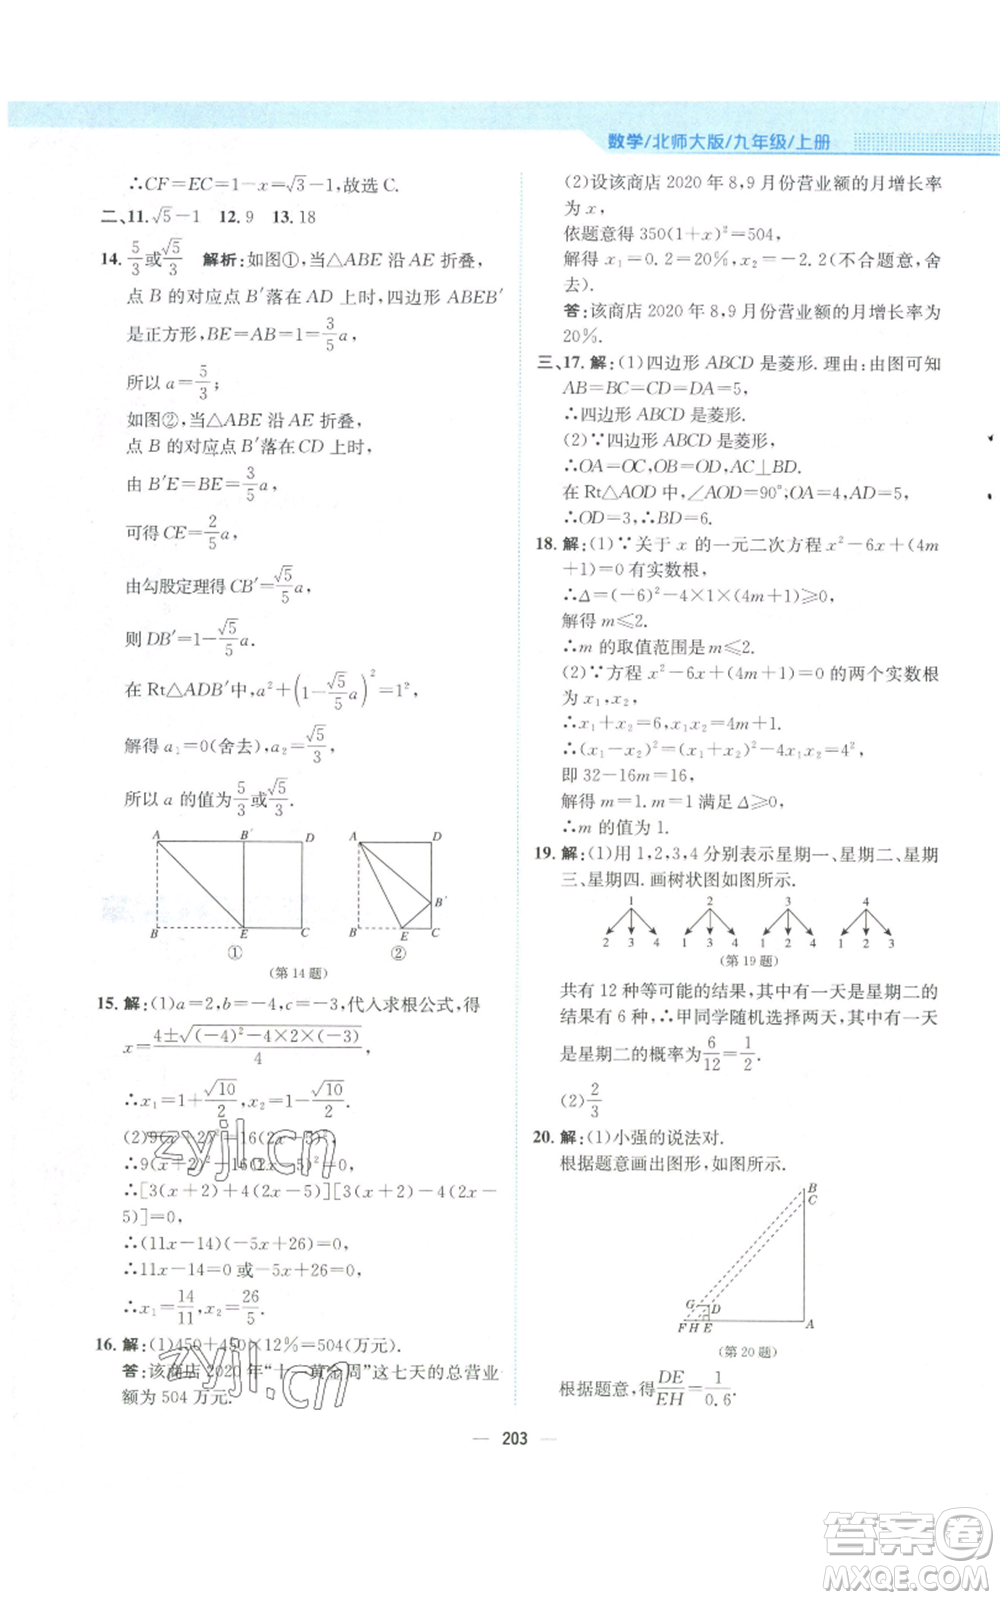 数学/北师大版/九年级/上册
∴CF=EC=1-x=√3-1,故选 C.
二、11.√5-1 12.9 13.18
14.5/3或√5/3 解析:如图①,当△ABE 沿 AE 折叠,
点 B 的对应点 B′落在 AD 上时,四边形 ABEB′
是正方形,BE=AB=1=3/5a,
所以 a=5/3;
如图②,当△ABE 沿 AE 折叠,
点 B 的对应点 B′落在 CD 上时,
由 B′E=BE=3/5a,
可得 CE=2/5a,
由勾股定理得 CB′=√5/5a,
则 DB′=1-√5/5a.
在 Rt△ADB′中,a²+(1-√5/5a)²=1²,
解得 a₁=0(舍去),a₂=√5/3,
所以 a 的值为5/3或√5/3.
A B′ D A D
B′
B E C B E C
① ②
(第 14 题)
15.解:(1)a=2,b=-4,c=-3,代入求根公式,得
x=(4±√((-4)²-4×2×(-3)))/4,
∴x₁=1+√10/2,x₂=1-√10/2.
(2)9(x+2)²=16(2x-5)²,
∴9(x+2)²-16(2x-5)²=0,
∴[3(x+2)+4(2x-5)][3(x+2)-4(2x-
5)]=0,
∴(11x-14)(-5x+26)=0,
∴11x-14=0 或-5x+26=0,
∴x₁=14/11,x₂=26/5.
16.解:(1)450+450×12%=504(万元).
答:该商店 2020 年“十一黄金周”这七天的总营业
额为 504 万元.
(2)设该商店 2020 年 8,9 月份营业额的月增长率
为 x,
依题意得 350(1+x)²=504,
解得 x₁=0.2=20%,x₂=-2.2(不合题意,舍
去).
答:该商店 2020 年 8,9 月份营业额的月增长率为
20%.
三、17.解:(1)四边形 ABCD 是菱形.理由:由图可知
AB=BC=CD=DA=5,
∴四边形 ABCD 是菱形.
(2)∵四边形 ABCD 是菱形,
∴OA=OC,OB=OD,AC⊥BD.
在 Rt△AOD 中,∠AOD=90°,OA=4,AD=5,
∴OD=3,∴BD=6.
18.解:(1)∵关于 x 的一元二次方程 x²-6x+(4m
+1)=0 有实数根,
∴Δ=(-6)²-4×1×(4m+1)≥0,
解得 m≤2.
∴m 的取值范围是 m≤2.
(2)∵方程 x²-6x+(4m+1)=0 的两个实数根
为 x₁,x₂,
∴x₁+x₂=6,x₁x₂=4m+1.
∴(x₁-x₂)²=(x₁+x₂)²-4x₁x₂=4²,
即 32-16m=16,
解得 m=1.m=1 满足 Δ≥0,
∴m 的值为 1.
19.解:(1)用 1,2,3,4 分别表示星期一、星期二、星期
三、星期四.画树状图如图所示.
1 2 3 4
2 3 4 1 3 4 1 2 4 1 2 3
(第 19 题)
共有 12 种等可能的结果,其中有一天是星期二的
结果有 6 种,∴甲同学随机选择两天,其中有一天
是星期二的概率为6/12=1/2.
(2)2/3
20.解:(1)小强的说法对.
根据题意画出图形,如图所示.
B
C
G D
F H E A
(第 20 题)
根据题意,得DE/EH=1/0.6.
203
zyjl.cn
zyjl.cn
答案圈
MXQE.COM